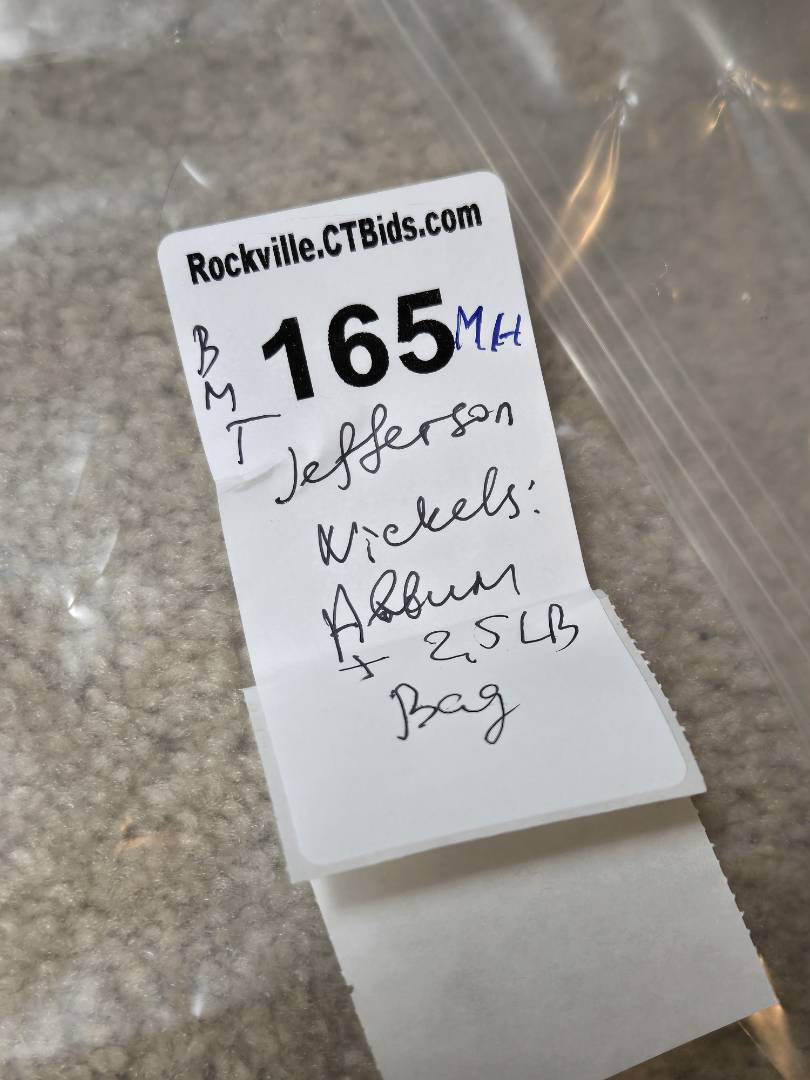 Rockville.CTBids.com
B
M
T
165 MH
Jefferson
Nickels:
Album
+ 2,5 LB
Bag